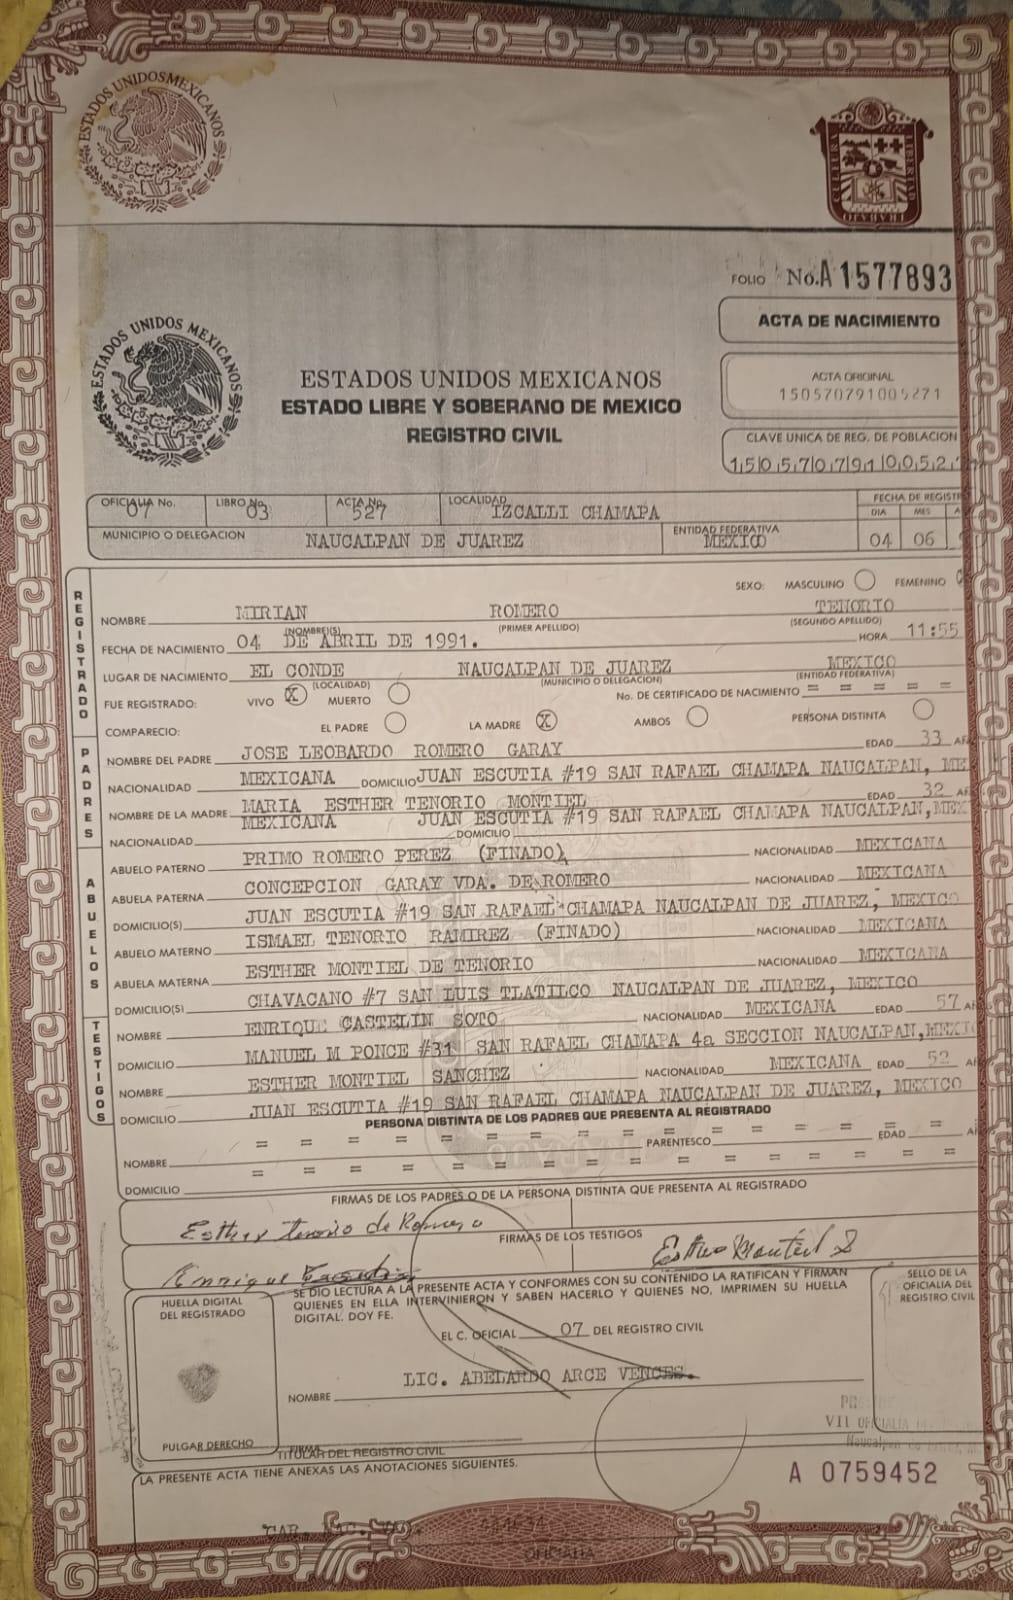 ESTADOS UNIDOS MEXICANOS
LIBERTAD
TRABAJO
FOLIO No. A 1577893
ACTA DE NACIMIENTO
ESTADOS UNIDOS MEXICANOS
ACTA ORIGINAL
ESTADOS UNIDOS MEXICANOS
ESTADO LIBRE Y SOBERANO DE MEXICO
REGISTRO CIVIL
CLAVE UNICA DE REG. DE POBLACION
1|5|0|5|7|0|7|9|1|0|0|5|2
OFICIALIA No. 07 LIBRO No. 03 ACTA No. 527 LOCALIDAD IZCALLI CHAMAPA FECHA DE REGISTR
DIA MES A
MUNICIPIO O DELEGACION NAUCALPAN DE JUAREZ ENTIDAD FEDERATIVA MEXICO 04 06
REGISTRADO
SEXO: MASCULINO FEMENINO
NOMBRE MIRIAN ROMERO TENORIO
(NOMBRE(S) (PRIMER APELLIDO) (SEGUNDO APELLIDO)
FECHA DE NACIMIENTO 04 DE ABRIL DE 1991. HORA 11:55
LUGAR DE NACIMIENTO EL CONDE NAUCALPAN DE JUAREZ MEXICO
(LOCALIDAD) (MUNICIPIO O DELEGACION) (ENTIDAD FEDERATIVA)
FUE REGISTRADO: VIVO X MUERTO No. DE CERTIFICADO DE NACIMIENTO = = = = =
COMPARECIO: EL PADRE LA MADRE X AMBOS PERSONA DISTINTA
PADRES
NOMBRE DEL PADRE JOSE LEOBARDO ROMERO GARAY EDAD 33 AÑ
NACIONALIDAD MEXICANA DOMICILIO JUAN ESCUTIA #19 SAN RAFAEL CHAMAPA NAUCALPAN, MEX
NOMBRE DE LA MADRE MARIA ESTHER TENORIO MONTIEL EDAD 32 AÑ
NACIONALIDAD MEXICANA DOMICILIO JUAN ESCUTIA #19 SAN RAFAEL CHAMAPA NAUCALPAN, MEX
ABUELOS
ABUELO PATERNO PRIMO ROMERO PEREZ (FINADO) NACIONALIDAD MEXICANA
ABUELA PATERNA CONCEPCION GARAY VDA. DE ROMERO NACIONALIDAD MEXICANA
DOMICILIO(S) JUAN ESCUTIA #19 SAN RAFAEL CHAMAPA NAUCALPAN DE JUAREZ, MEXICO
ABUELO MATERNO ISMAEL TENORIO RAMIREZ (FINADO) NACIONALIDAD MEXICANA
ABUELA MATERNA ESTHER MONTIEL DE TENORIO NACIONALIDAD MEXICANA
DOMICILIO(S) CHAVACANO #7 SAN LUIS TLATILCO NAUCALPAN DE JUAREZ, MEXICO
TESTIGOS
NOMBRE ENRIQUE CASTELIN SOTO NACIONALIDAD MEXICANA EDAD 57 AÑ
DOMICILIO MANUEL M PONCE #31 SAN RAFAEL CHAMAPA 4a SECCION NAUCALPAN, MEXIC
NOMBRE ESTHER MONTIEL SANCHEZ NACIONALIDAD MEXICANA EDAD 52 AÑ
DOMICILIO JUAN ESCUTIA #19 SAN RAFAEL CHAMAPA NAUCALPAN DE JUAREZ, MEXICO
PERSONA DISTINTA DE LOS PADRES QUE PRESENTA AL REGISTRADO
NOMBRE = = = = = = = = = PARENTESCO = = = = EDAD = = AÑ
DOMICILIO = = = = = = = = = = = = = = = =
FIRMAS DE LOS PADRES O DE LA PERSONA DISTINTA QUE PRESENTA AL REGISTRADO
Esther Tenorio de Romero
FIRMAS DE LOS TESTIGOS
Esther Montiel S
Enrique
SE DIO LECTURA A LA PRESENTE ACTA Y CONFORMES CON SU CONTENIDO LA RATIFICAN Y FIRMAN
QUIENES EN ELLA INTERVINIERON Y SABEN HACERLO Y QUIENES NO, IMPRIMEN SU HUELLA
DIGITAL. DOY FE.
HUELLA DIGITAL
DEL REGISTRADO
SELLO DE LA
OFICIALIA DEL
REGISTRO CIVIL
EL C. OFICIAL 07 DEL REGISTRO CIVIL
LIC. ABELARDO ARCE VENCES.
NOMBRE
PULGAR DERECHO
FIRMA
TITULAR DEL REGISTRO CIVIL
VII OFICIALIA
A 0759452
LA PRESENTE ACTA TIENE ANEXAS LAS ANOTACIONES SIGUIENTES.